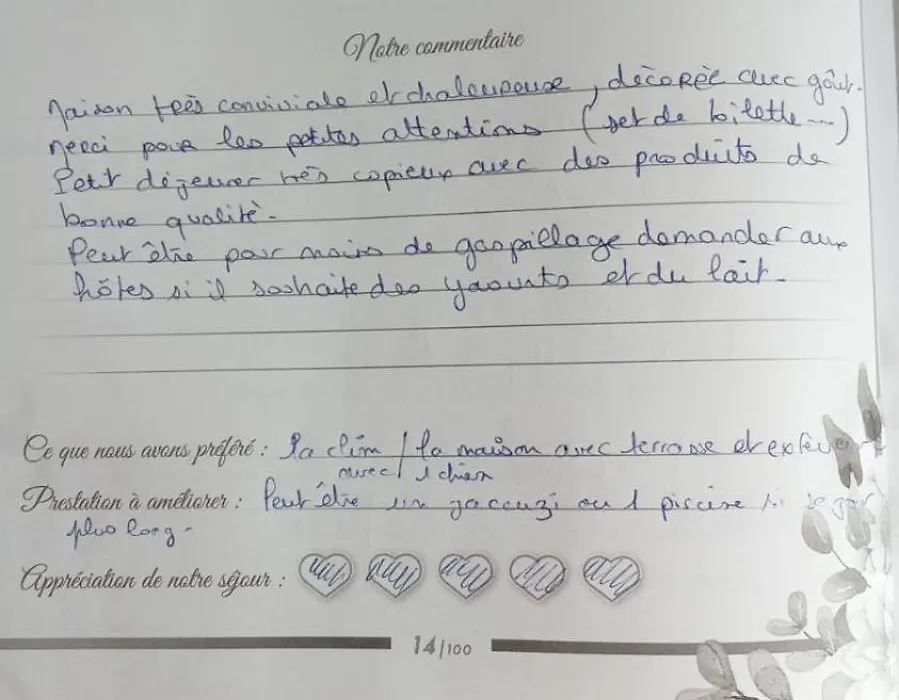 Notre commentaire
Maison très conviviale et chaleureuse, décorée avec goût.
Merci pour les petites attentions (set de toilette...)
Petit déjeuner très copieux avec des produits de
bonne qualité.
Peut être pour moins de gaspillage demander aux
hôtes si il souhaite des yaourts et du lait.
Ce que nous avons préféré : la clim / la maison avec terrasse et
avec 1 chien
Prestation à améliorer : Peut être un jacouzi ou 1 piscine si séjour
plus long.
Appréciation de notre séjour :
14/100